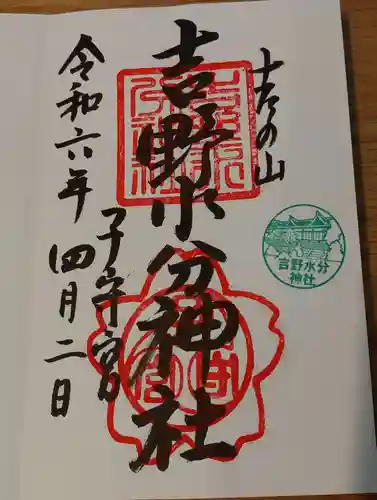 吉の山
吉野水分神社
子守宮
令和六年
四月二日
吉野水分
神社